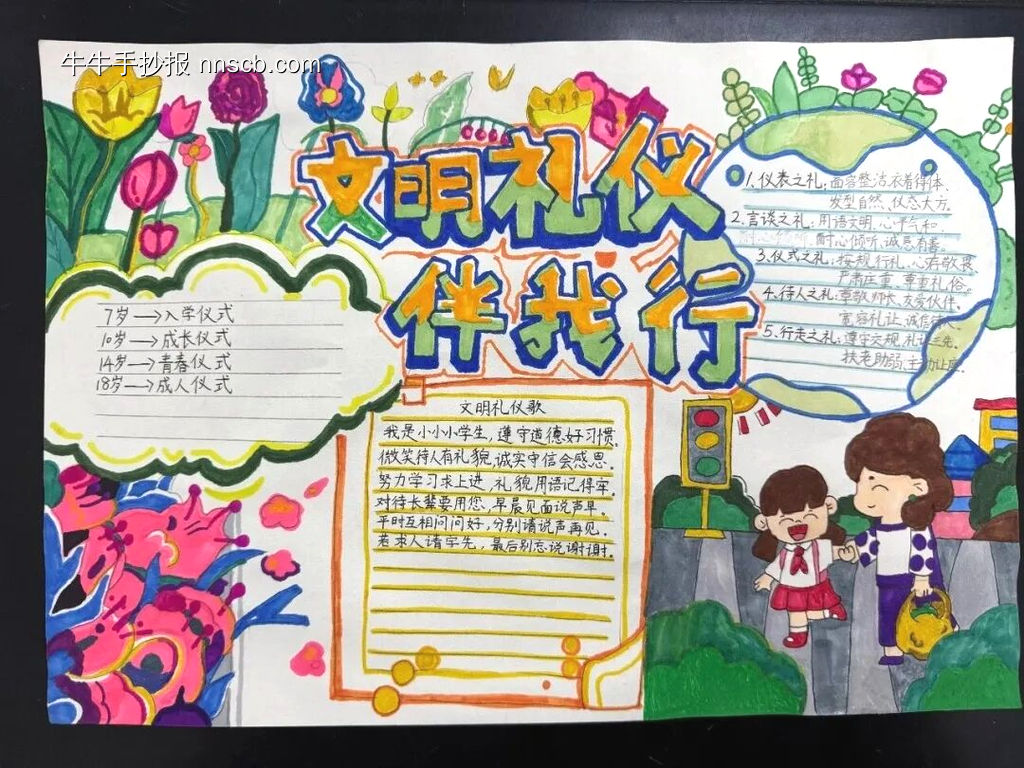 牛牛手抄报 nnscb.com
文明礼仪
伴我行
7岁→入学仪式
10岁→成长仪式
14岁→青春仪式
18岁→成人仪式
文明礼仪歌
我是小小小学生,遵守道德好习惯。
微笑待人有礼貌,诚实守信会感恩。
努力学习求上进,礼貌用语记得牢。
对待长辈要用您,早晨见面说声早。
平时互相问问好,分别请说声再见。
若求人请字先,最后别忘说谢谢。
1.仪表之礼:面容整洁衣着得体、
发型自然、仪态大方。
2.言谈之礼:用语文明、心平气和、
耐心倾听、诚恳友善。
3.仪式之礼:按规行礼、心存敬畏、
严肃庄重、尊重礼俗。
4.待人之礼:尊敬师长、友爱伙伴、
宽容礼让、诚信待人。
5.行走之礼:遵守交规、礼让三先、
扶老助弱、主动让座。